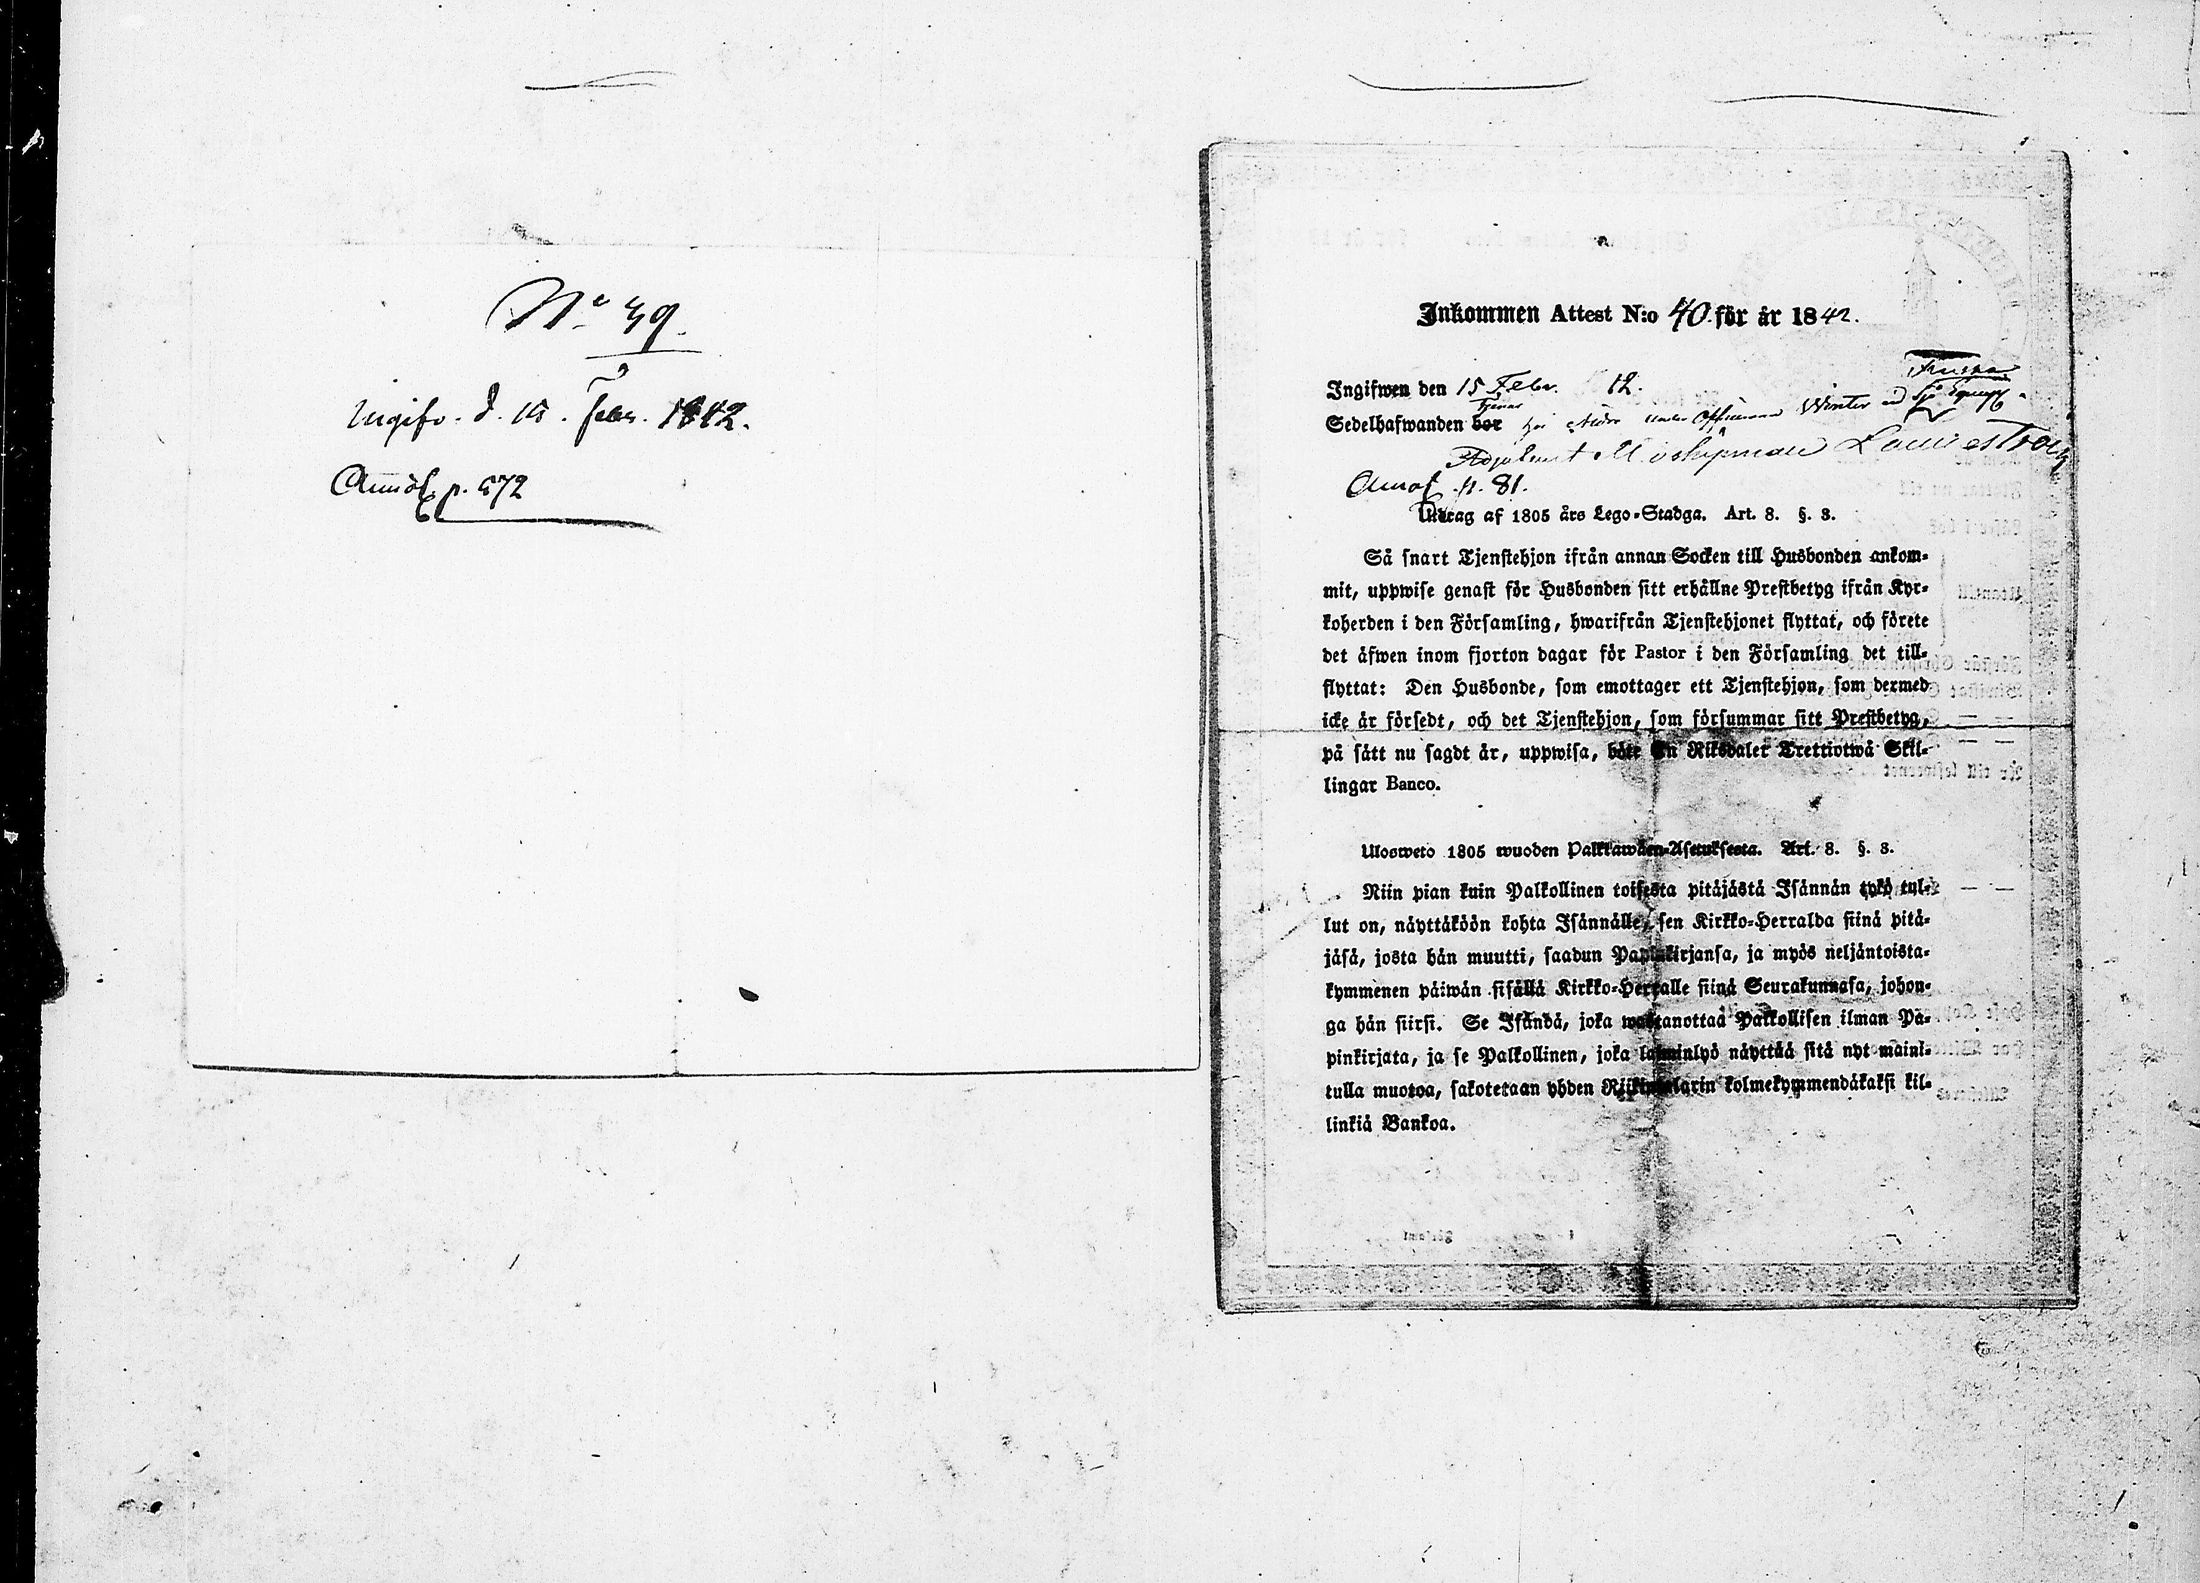 No 39.
Ingifv. d. 15. Febr. 1842.
p. 572
Inkommen Attest N:o 40 för år 1842.
Ingifwen den 15 Febr. 42.
Sedelhafwanden bor tjenar hos under Officeraren Winter vid
Adjutant
p. 81.
Utdrag af 1805 års Lego-Stadga. Art. 8. §. 3.
Så snart Tjenstehjon ifrån annan Socken till Husbonden ankom-
mit, uppwise genast för Husbonden sitt erhållne Prestbetyg ifrån Kyr-
koherden i den Församling, hwarifrån Tjenstehjonet flyttat, och förete
det äfwen inom fjorton dagar för Pastor i den Församling det till-
flyttat: Den Husbonde, som emottager ett Tjenstehjon, som dermed
icke är försedt, och det Tjenstehjon, som försummar sitt Prestbetyg,
på sätt nu sagdt är, uppwisa, böte En Riksdaler Trettiotwå Skil-
lingar Banco.
Ulosweto 1805 wuoden Palkkawäen-Asetuksesta. Art. 8. §. 3.
Niin pian kuin Palkollinen toisesta pitäjästä Isännän tykö tul-
lut on, näyttäköön kohta Isännälle, sen Kirkko-Herralda siinä pitä-
jäsä, josta hän muutti, saadun Papinkirjansa, ja myös neljäntoista-
kymmenen päiwän sisällä Kirkko-Herralle siinä Seurakunnasa, johon-
ga hän siirsi. Se Isändä, joka wastanottaa Palkollisen ilman Pa-
pinkirjata, ja se Palkollinen, joka laiminlyö näyttää sitä nyt maini-
tulla muotoa, sakotetaan yhden Riikintalarin kolmekymmendäkaksi kil-
linkiä Bankoa.